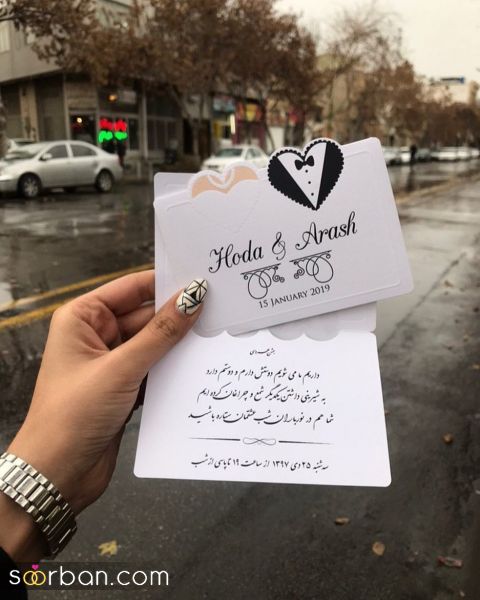 Hoda & Arash
15 January 2019
داریم ما می شویم دوستش دارم و دوستم دارد
به شیرینی داشتن یکدیگر شمع و چراغان کرده ایم
شما هم در نورباران شب عشقمان ستاره باشید
سه شنبه ۲۵ دی ۱۳۹۷ از ساعت ۱۹ تا پاسی از شب
soorban.com